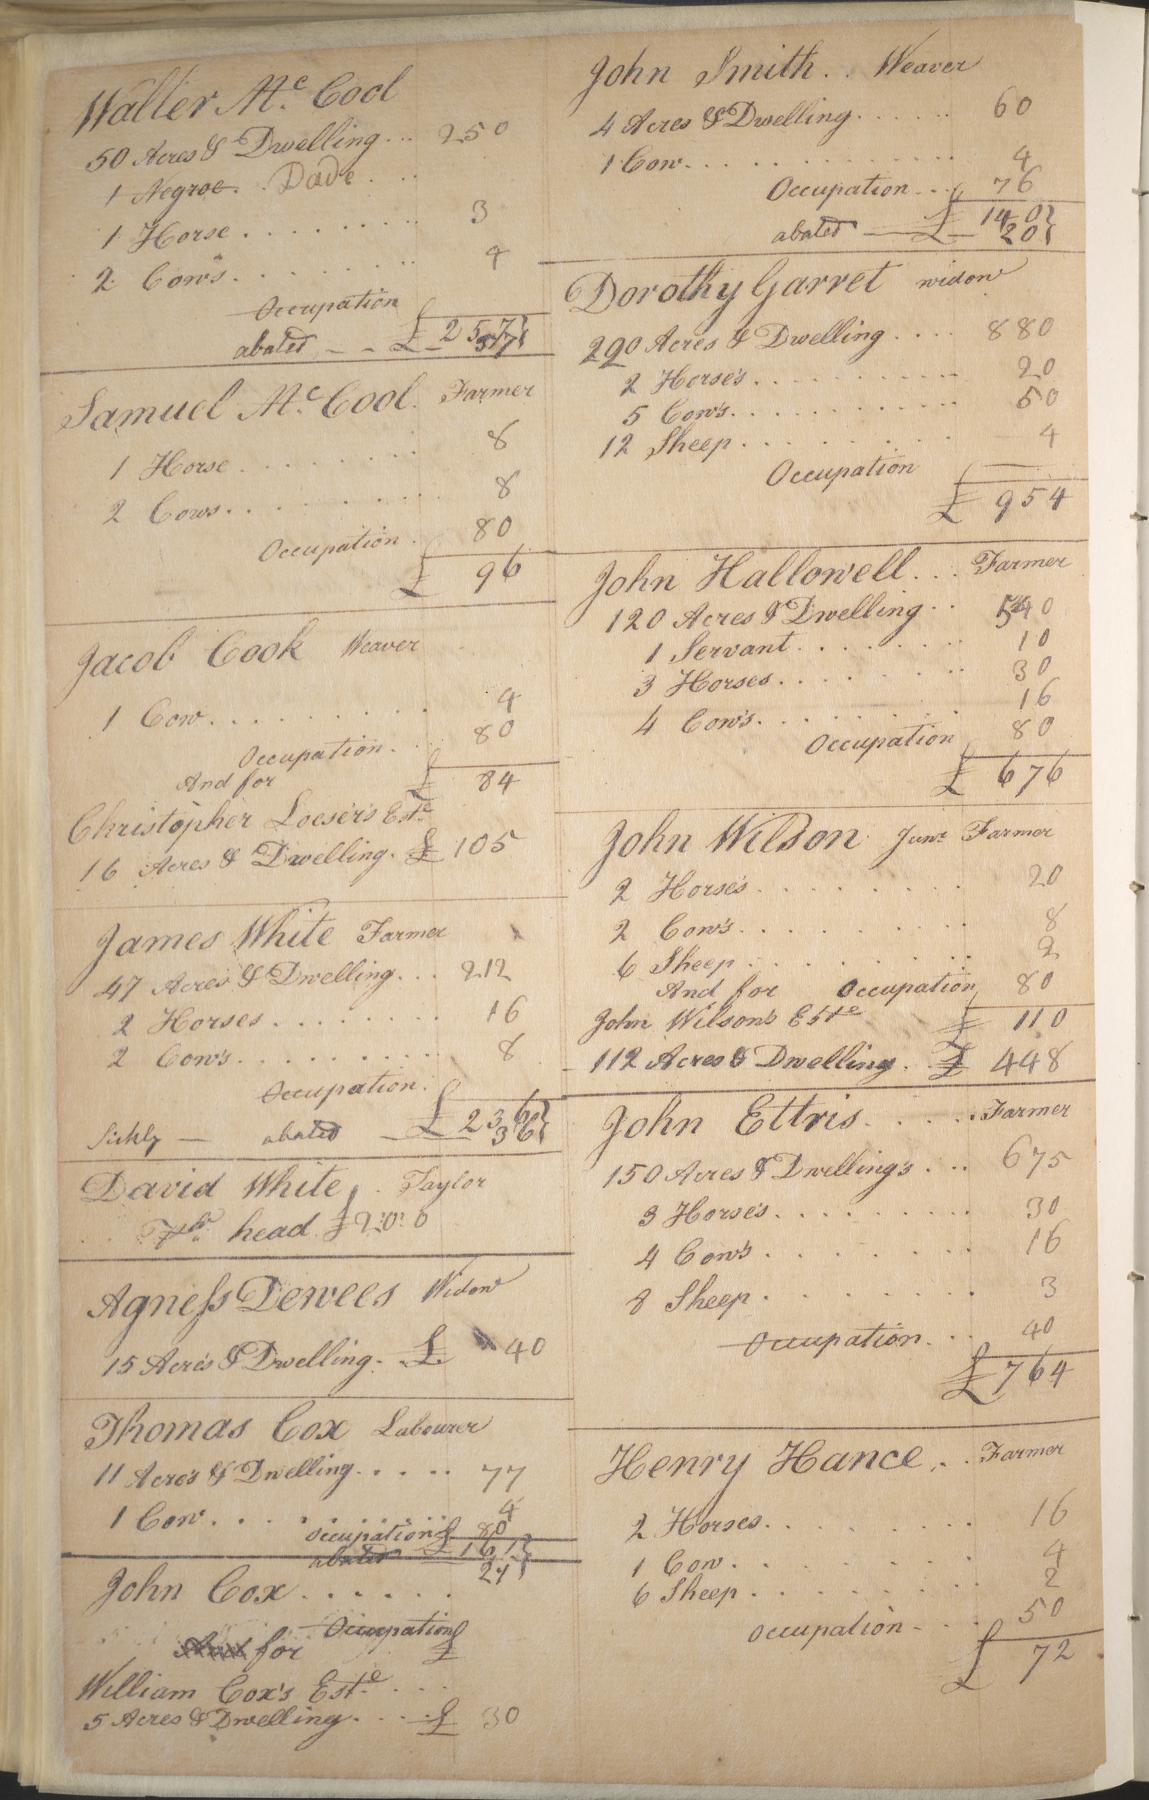 Walter Mc. Cool
50 Acres & Dwelling... 250
1 Negroe. Dade...
1 Horse........ 3
2 Cow's........ 4
Occupation
abated - - £ 257
37
Samuel Mc. Cool. Farmer
1 Horse........ 8
2 Cows........ 8
Occupation. 80
£ 96
Jacob Cook Weaver
1 Cow......... 4
Occupation. 80
And for £ 84
Christopher Loeser's Este
16 Acres & Dwelling. £ 105
James White Farmer
47 Acres & Dwelling... 212
2 Horses........ 16
2 Cow's......... 8
Occupation.
£ 236
Sickly — abated — 36
David White. Taylor
head £ 2:0:0
Agness Dewees Widow
15 Acres & Dwelling. £. 40
Thomas Cox Labourer
11 Acres & Dwelling..... 77
1 Cow.......... 4
Occupation 80
£ 161
abated 21
John Cox......
Occupation
for £
William Cox's Este...
5 Acres & Dwelling.... £ 30
John Smith.. Weaver
4 Acres & Dwelling...... 60
1 Cow............. 4
Occupation... 76
£ 140
abated — £ — 20
Dorothy Garret widow
220 Acres & Dwelling.... 880
2 Horse's........... 20
5 Cow's............ 50
12 Sheep........... 4
Occupation —
£ 954
John Hallowell... Farmer
120 Acres & Dwelling.. 540
1 Servant........ 10
3 Horses........ 30
4 Cow's......... 16
Occupation 80
£ 676
John Wilson Junr Farmer
2 Horse's.......... 20
2 Cow's........... 8
6 Sheep.......... 2
And for Occupation 80
John Wilson's Este £ 110
112 Acres & Dwelling. £ 448
John Ettris...... Farmer
150 Acres & Dwelling's... 675
3 Horse's......... 30
4 Cow's......... 16
8 Sheep......... 3
Occupation... 40
£ 764
Henry Hance... Farmer
2 Horses......... 16
1 Cow........... 4
6 Sheep.......... 2
Occupation... 50
£ 72